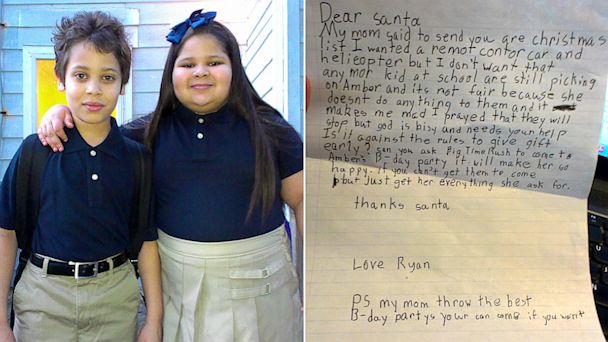 Dear santa
My mom said to send you are christmas
list I wanted a remot contor car and
helicopter but I don't want that
any mor kid at school are still picking
on Amber and its not fair because she
doesnt do anything to them and it
makes me mad I prayed that they will
stop but god is bisy and needs your help
Is it against the rules to give gift
early? can you ask Big Time Rush to come to
Amber's B-day party it will make her so
happy. If you can't get them to come
but just get her everything she ask for.
thanks santa
Love Ryan
PS my mom throw the best
B-day partys your can come if you won't